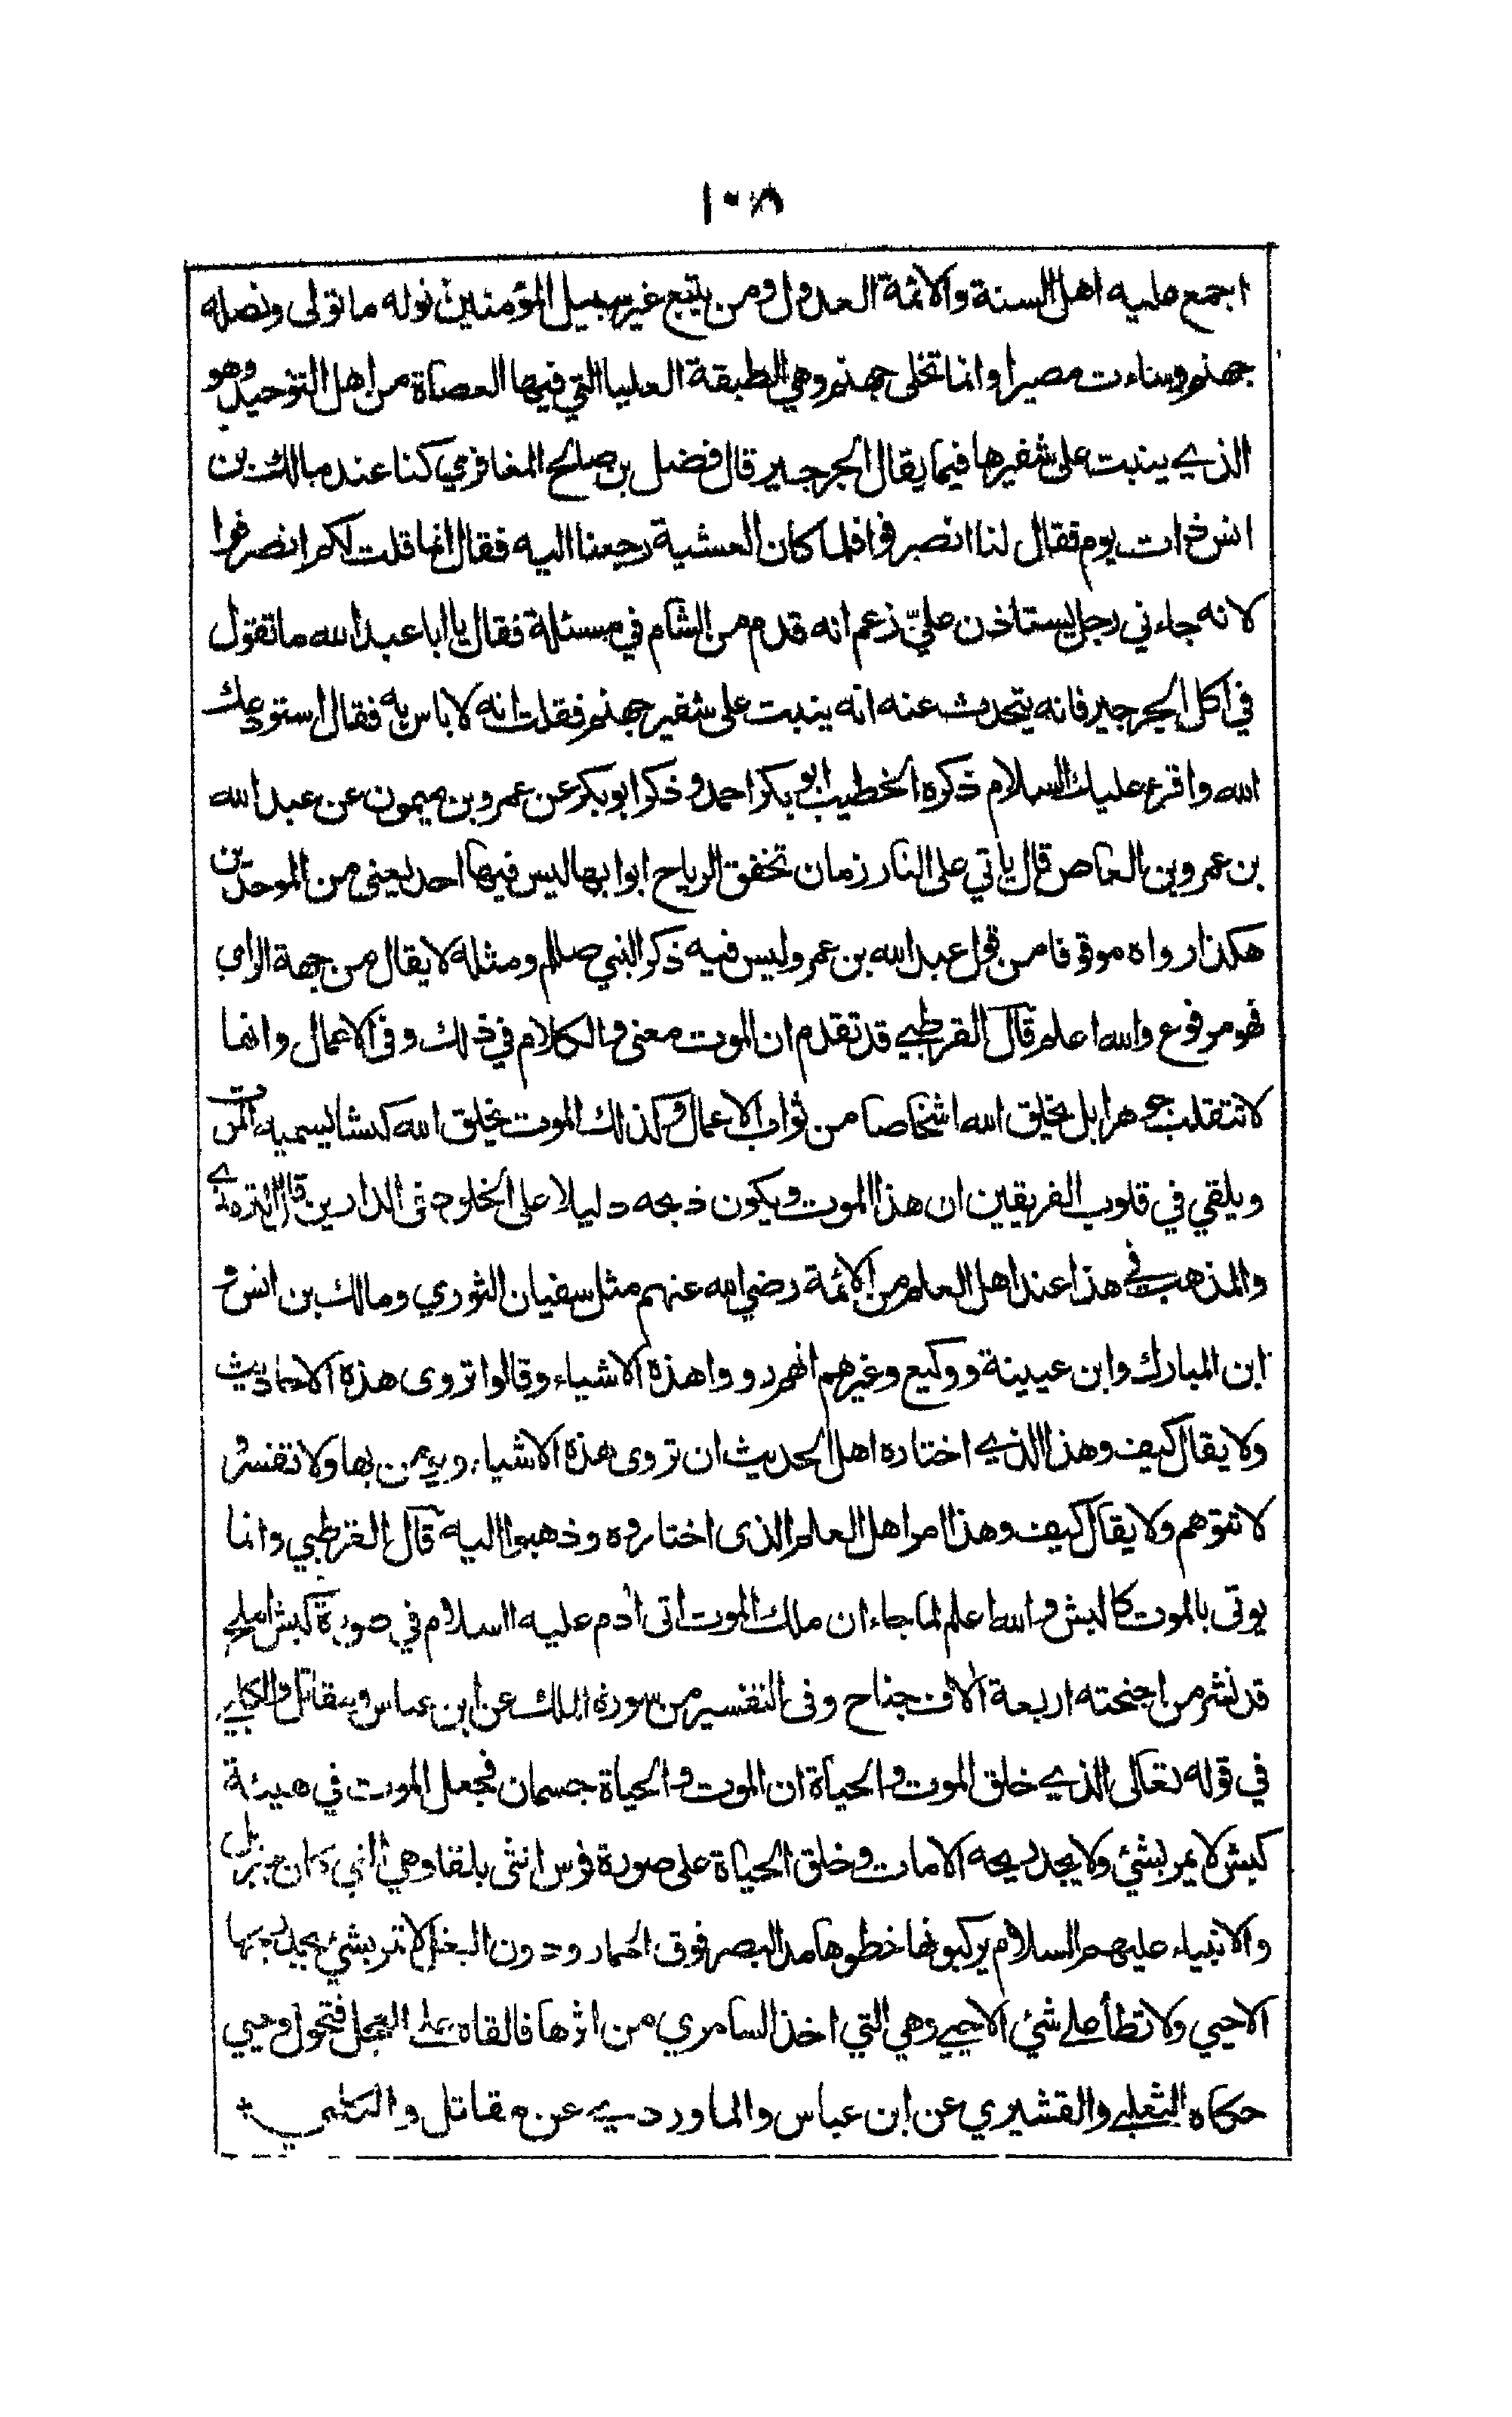 ١٠٨
اجمع عليه اهل السنة والائمة العدول ومن يتبع غير سبيل المؤمنين نوله ما تولى ونصله
جهنم وساءت مصيرا وانما تخلى جهنم وهي الطبقة العليا التي فيها العصاة من اهل التوحيد وهو
الذي ينبت على شفيرها فيما يقال الجرجير قال فضل بن صالح المغافري كنا عند مالك بن
انس ذات يوم فقال لنا انصرفوا فلما كان العشية رجعنا اليه فقال انما قلت لكم انصرفوا
لانه جاءني رجل يستاذن عليّ زعم انه قدم من الشام في مسئلة فقال يا ابا عبد الله ما تقول
في اكل الجرجير فانه يتحدث عنه انه ينبت على شفير جهنم فقلت انه لا باس به فقال استودعك
الله واقرء عليك السلام ذكره الخطيب ابو بكر احمد وذكر ابو بكر عن عمرو بن ميمون عن عبد الله
بن عمرو بن العاص قال ياتي على النار زمان تخفق الرياح ابوابها ليس فيها احد يعني من الموحدين
هكذا رواه موقوفا من قول عبد الله بن عمرو وليس فيه ذكر النبي صللم ومثله لا يقال من جهة الراي
فهو مرفوع والله اعلم قال القرطبي قد تقدم ان الموت معنى والكلام في ذلك وفى الاعمال وانما
لا تنقلب جوهرا بل يخلق الله اشخاصا من ثواب الاعمال وكذلك الموت يخلق الله كبشا يسميه الموت
ويلقي في قلوب الفريقين ان هذا الموت ويكون ذبحه دليلا على الخلود فى الدارين قال الترمذي
والمذهب في هذا عند اهل العلم من الائمة رضي الله عنهم مثل سفيان الثوري ومالك بن انس و
ابن المبارك وابن عيينة ووكيع وغيرهم انهم رووا هذه الاشياء وقالوا تروى هذه الاحاديث
ولا يقال كيف وهذا الذي اختاره اهل الحديث ان تروى هذه الاشياء ويومن بها ولا تفسر و
لا تتوهم ولا يقال كيف وهذا امر اهل العلم الذى اختاروه وذهبوا اليه قال القرطبي وانما
يوتى بالموت كالبش والله اعلم لما جاء ان ملك الموت اتى آدم عليه السلام في صورة كبش املح
قد نشر من اجنحته اربعة الاف جناح وفى التفسير من سورة الملك عن ابن عباس ومقاتل والكلبي
في قوله تعالى الذي خلق الموت والحياة ان الموت والحياة جسمان فجعل الموت في هيئة
كبش لا يمر بشئ ولا يجد ريحه الا مات وخلق الحياة على صورة فرس انثى بلقا وهي التي كان جبريل
والانبياء عليهم السلام يركبونها خطوها مد البصر فوق الحمار ودون البغل لا تمر بشئ يجد ريحها
الا حيي ولا تطأ على شئ الا حيي وهي التي اخذ السامري من اثرها فالقاه على العجل فتحول وحيي
حكاه الثعلبي والقشيري عن ابن عباس والماوردي عن مقاتل والكلبي *